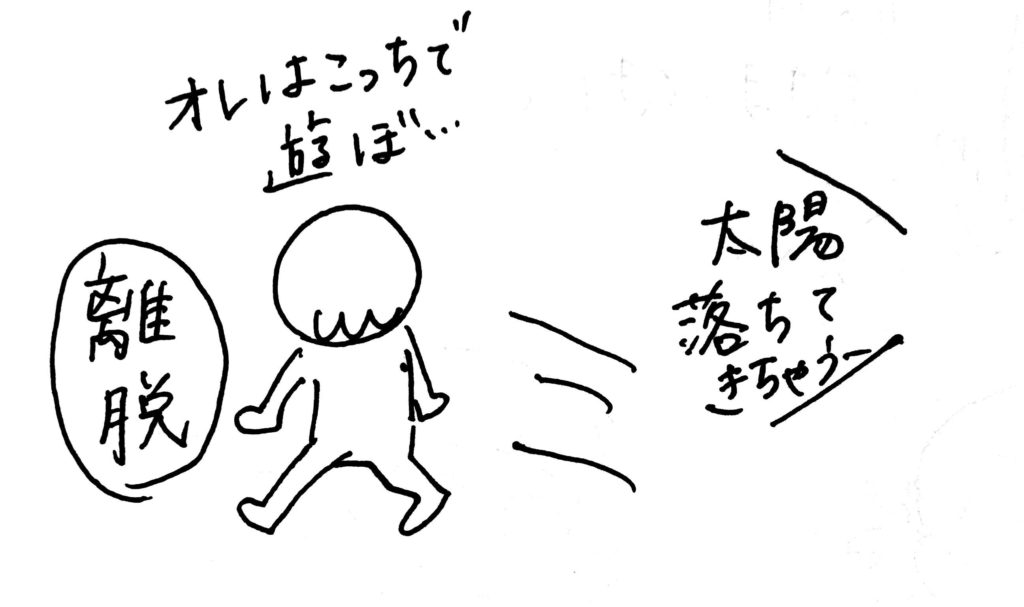 オレはこっちで
遊ぼ…
離
脱
太陽
落ちて
きちゃうー